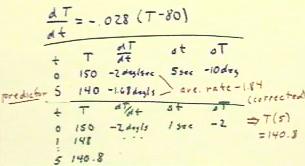 dT/dt = -.028 (T-80)
t T dT/dt Δt ΔT
0 150 -2 deg/sec 5 sec -10 deg
predictor 5 140 -1.68 deg/s ave. rate -1.84 (corrected)
t T dT/dt Δt ΔT ⇒ T(5)
0 150 -2 deg/s 1 sec -2 = 140.8
1 148 ...
⋮
5 140.8